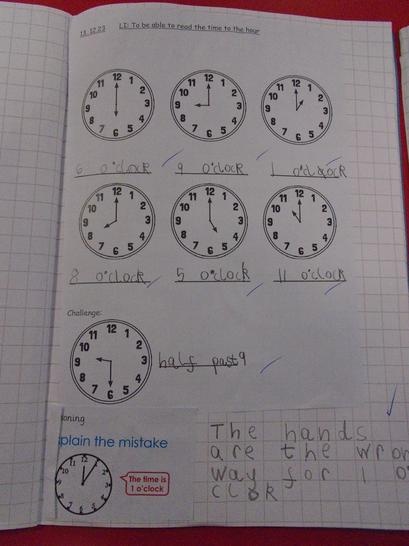 13.12.23 LI: To be able to read the time to the hour
12 1 2 3 4 5 6 7 8 9 10 11
12 1 2 3 4 5 6 7 8 9 10 11
12 1 2 3 4 5 6 7 8 9 10 11
6 o'clock 9 o'clock 1 o'clock
12 1 2 3 4 5 6 7 8 9 10 11
12 1 2 3 4 5 6 7 8 9 10 11
12 1 2 3 4 5 6 7 8 9 10 11
8 o'clock 5 o'clock 11 o'clock
Challenge:
12 1 2 3 4 5 6 7 8 9 10 11
half past 9
oning
plain the mistake
The time is
1 o'clock
The hands
are the wron
way for 1 o
clok